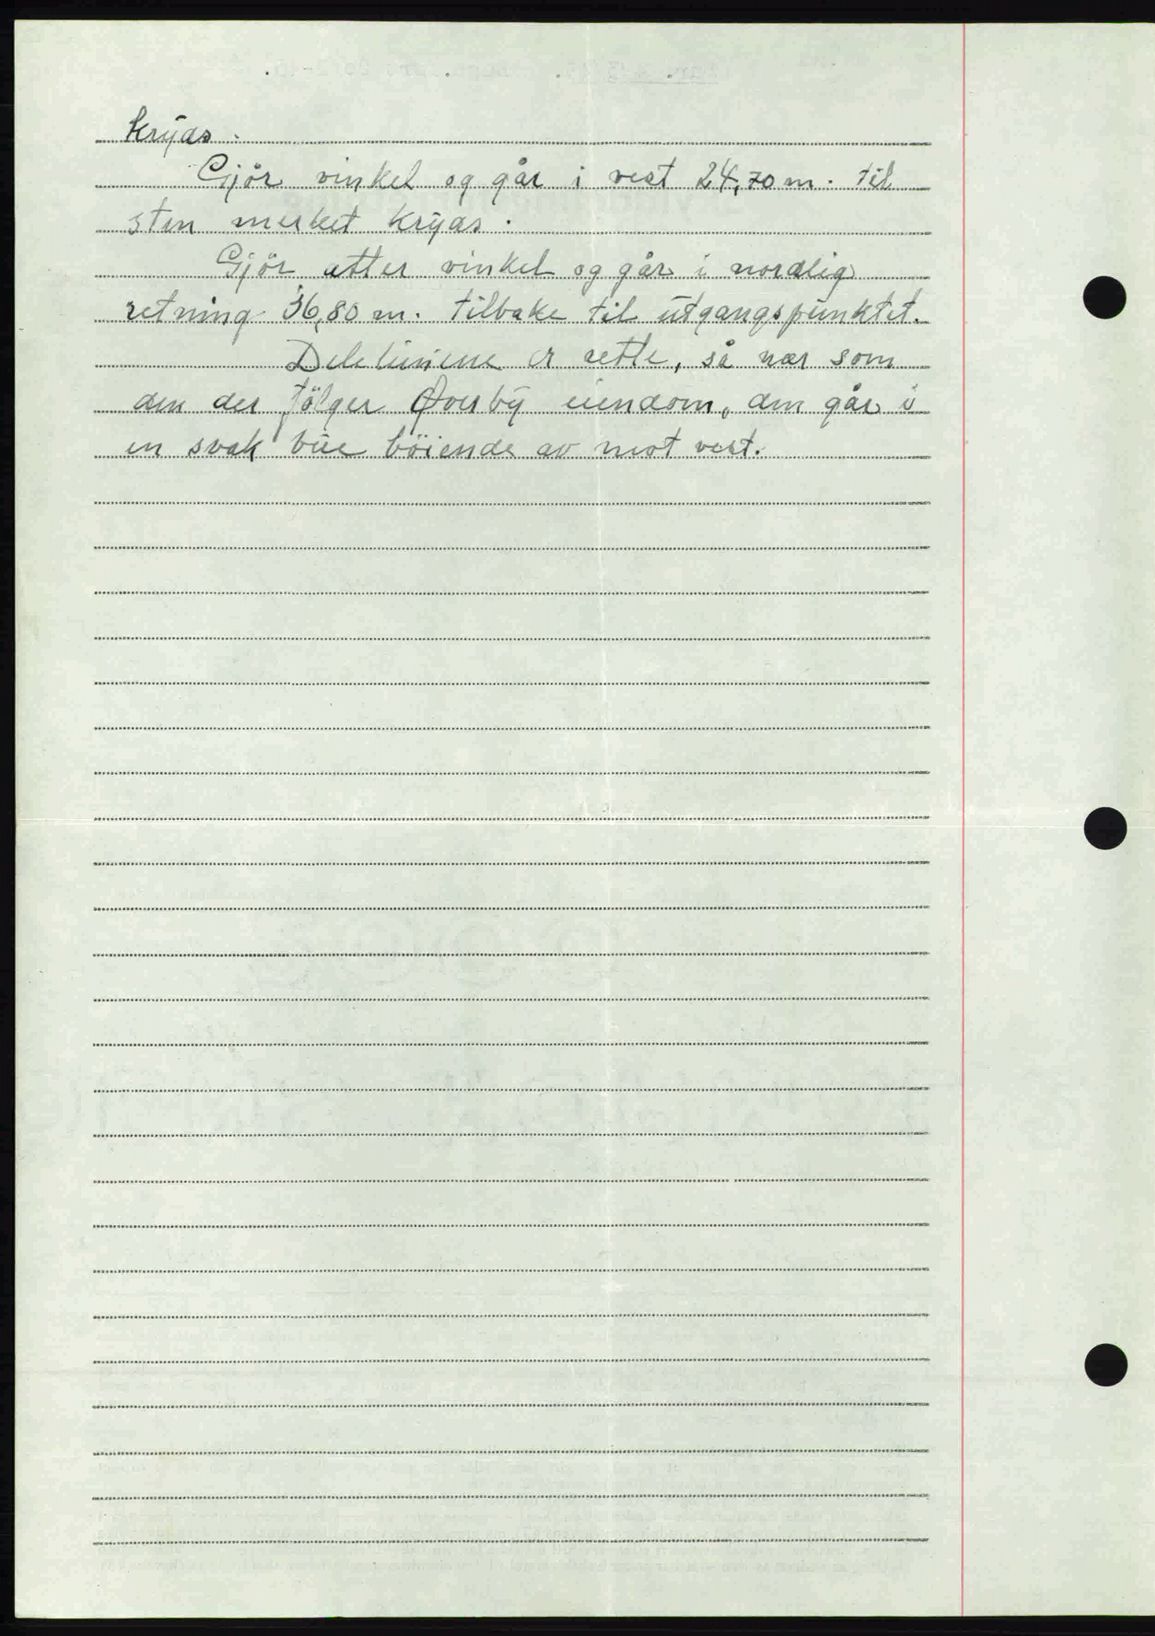 kryds.
Gjör vinkel og går i vest 24,70 m. til
sten merket kryds.
Gjör atter vinkel og går i nordlig
retning 36,80 m. tilbake til utgangspunktet.
Delelinjene er rette, så nær som
den der fölger Øverby eiendom, den går i
en svak bue böiende av mot vest.